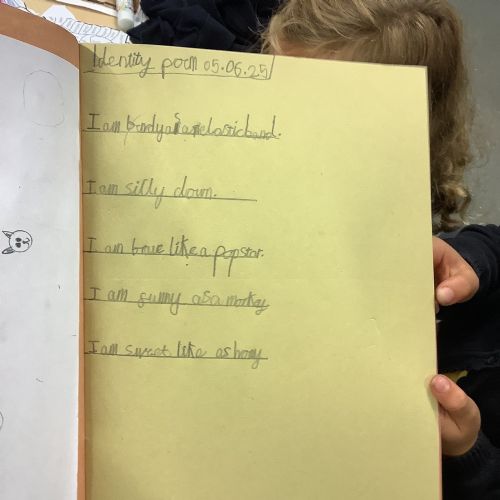 Identity poem 05.06.25
I am bendy as an elastic band.
I am silly clown.
I am brave like a popstar.
I am funny as a monkey
I am sweet like as hony